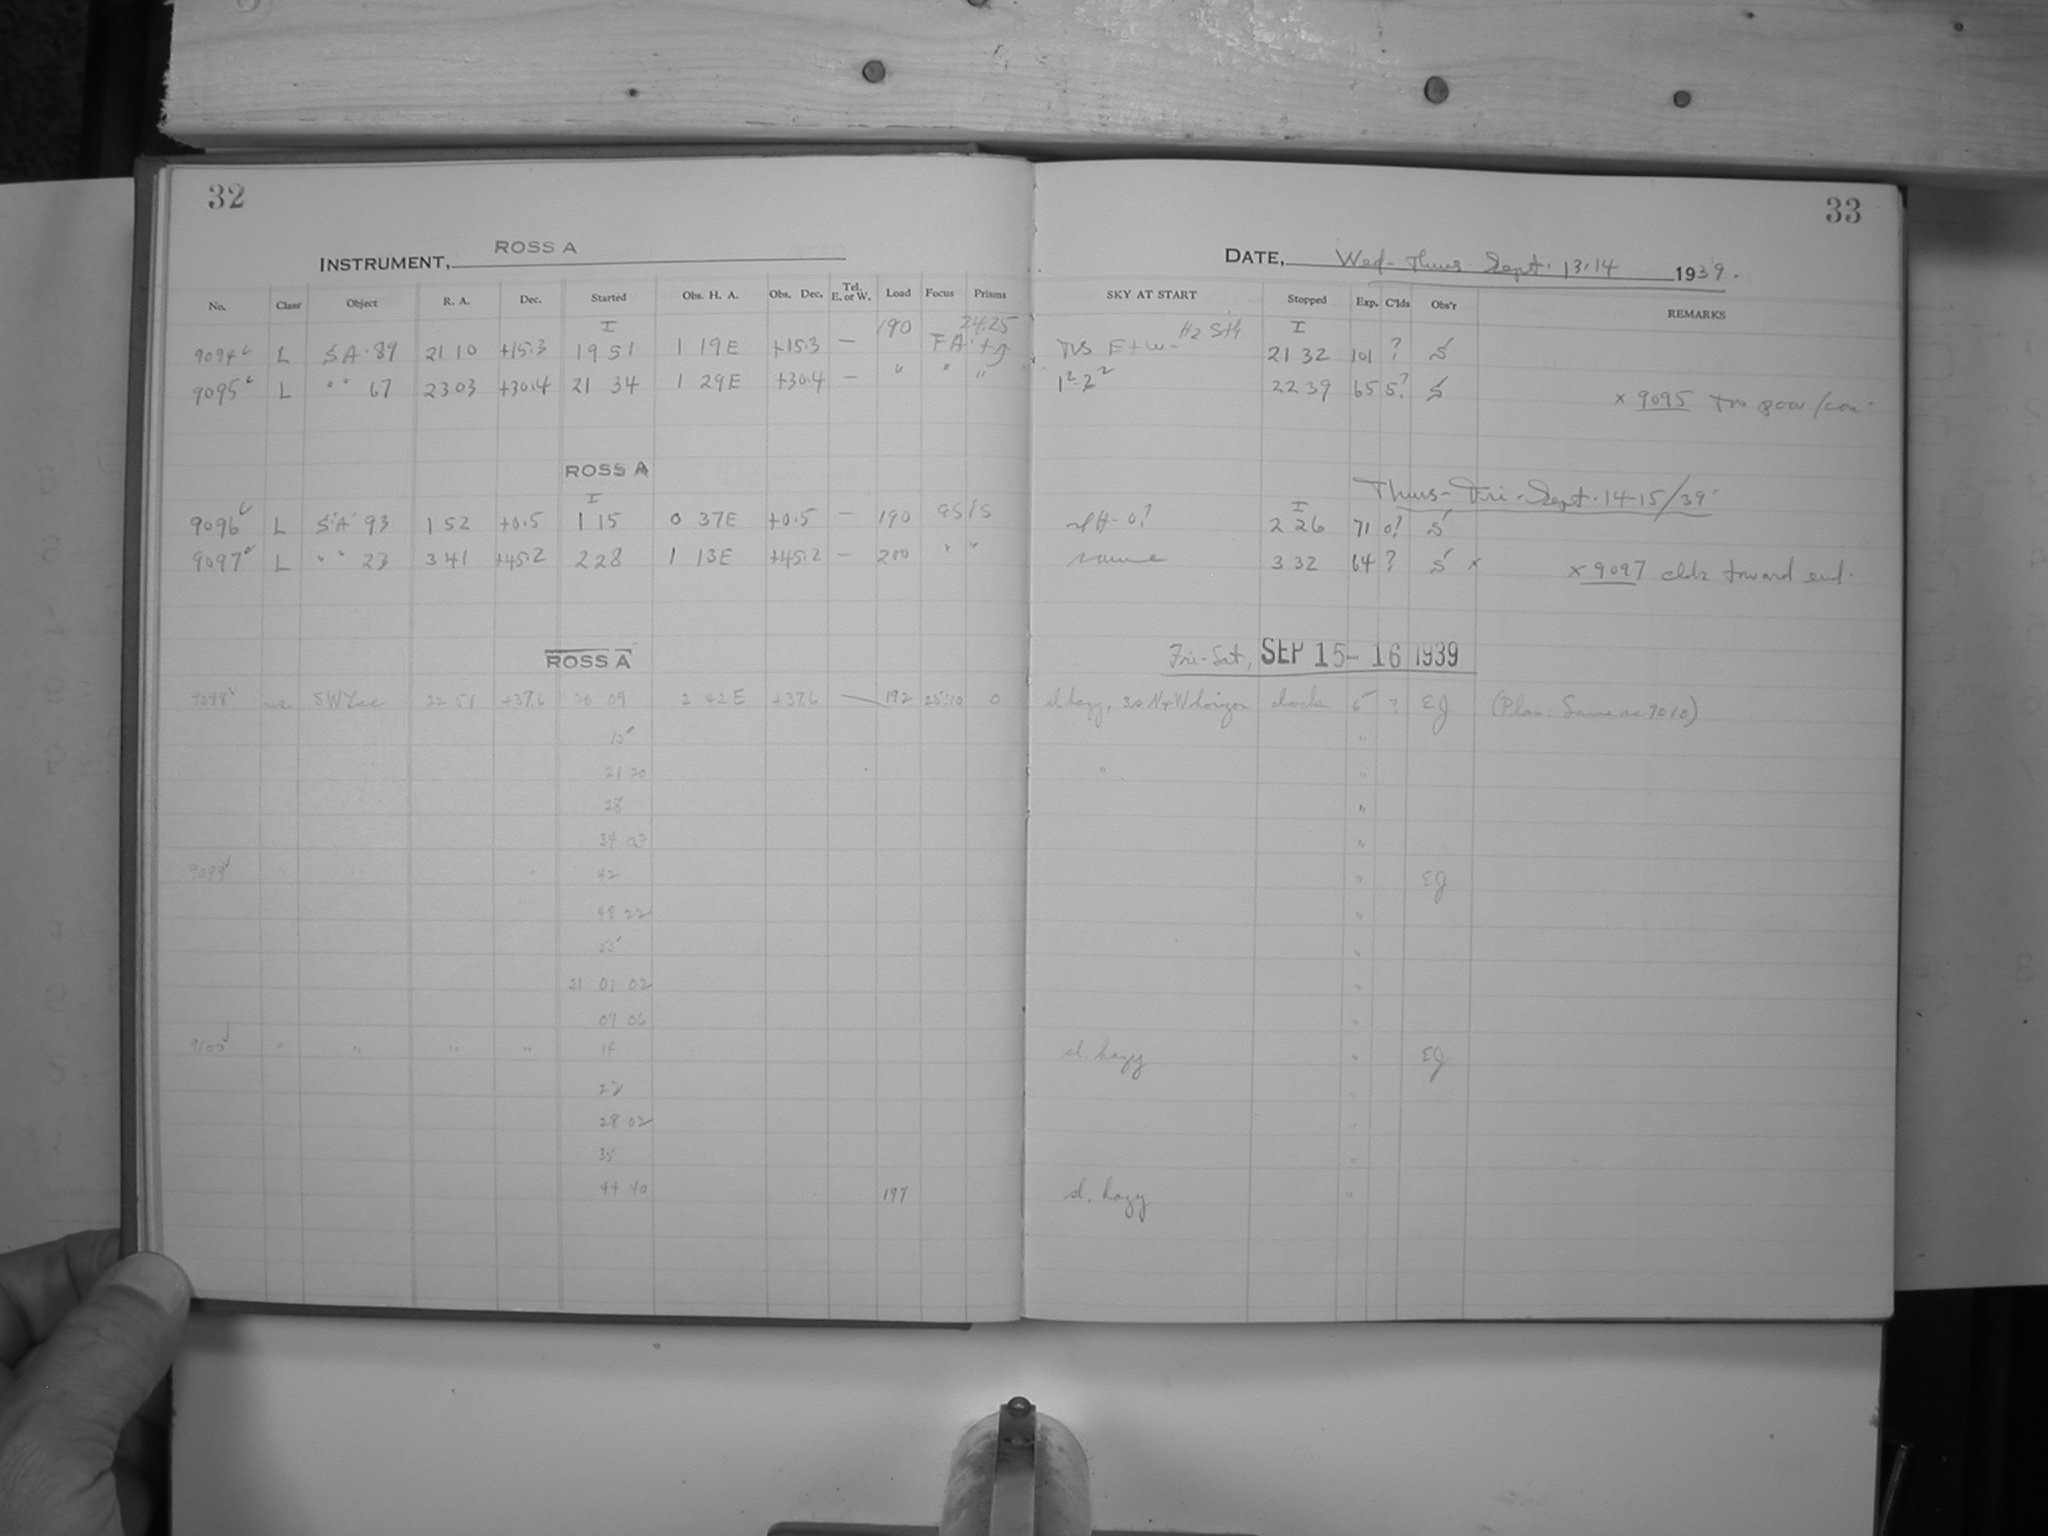 32
33
INSTRUMENT, ROSS A
DATE, Wed-Thurs. Sept. 13.14 1939.
No. Class Object R. A. Dec. Started Obs. H. A. Obs. Dec. Tel. E. or W. Load Focus Prisms SKY AT START Stopped Exp. C'lds Obs'r REMARKS
I 190 24.25 Hz Sth I
9094 L SA 89 21 10 +15.3 19 51 1 19E +15.3 — E+W- 21 32 101 ? S
9095 L " " 67 23 03 +30.4 21 34 1 29E +30.4 — " " " 22 39 65 S? S x 9095 Too poor
ROSS A
Thurs-Fri-Sept. 14-15/39
I I
9096 L SA 93 1 52 +0.5 1 15 0 37E +0.5 — 190 2 26 71 0? S
9097 L " " 23 3 41 +45.2 2 28 1 13E +45.2 — 200 " " same 3 32 64 ? S x x 9097 clds toward end.
ROSS A Fri-Sat, SEP 15-16 1939
9098 SW Lac 22 51 +37.6 20 09 2 42 E +37.6 — 192 25.10 0 sl hazy, N+W horizon clock 5 ? EJ (Plan: Same as 9010)
15 "
21 20 " "
28 "
34 03 "
9099 42 " EJ
48 22 "
55 "
21 01 02 "
07 06 "
9100 " " " " 14 sl. hazy " EJ
22 "
28 02 "
35 "
44 40 197 sl. hazy "